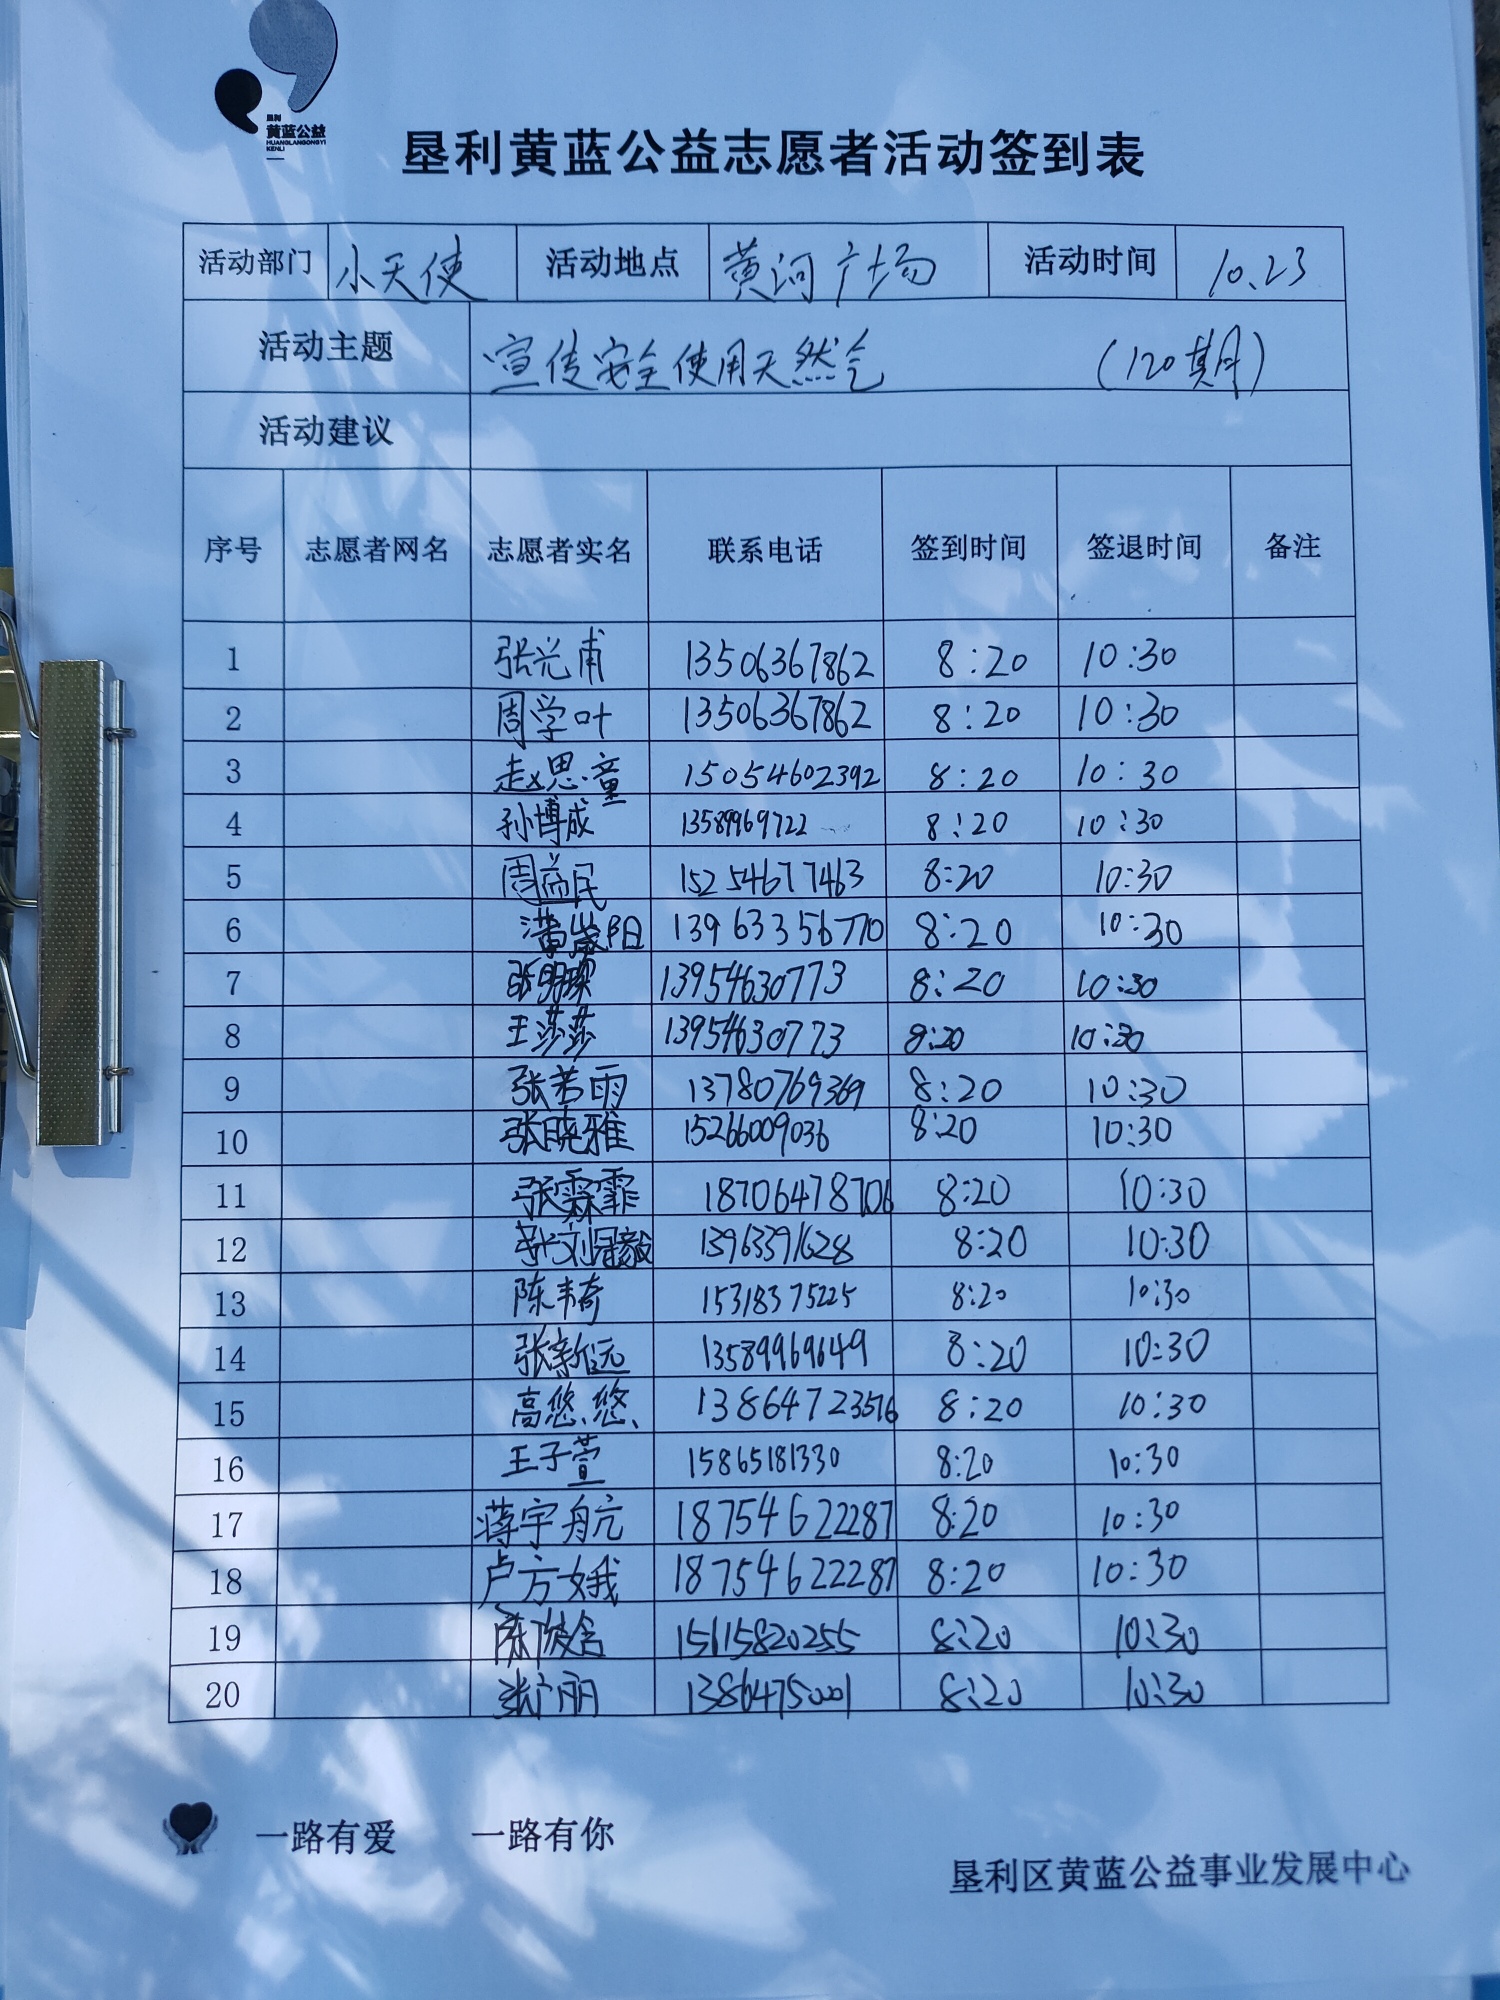 垦利
黄蓝公益
HUANGLANGONGYI
KENLI
垦利黄蓝公益志愿者活动签到表
活动部门 小天使 活动地点 黄河广场 活动时间 10.23
活动主题 宣传安全使用天然气 (120期)
活动建议
序号 志愿者网名 志愿者实名 联系电话 签到时间 签退时间 备注
1 张光甫 13506367862 8:20 10:30
2 周学叶 13506367862 8:20 10:30
3 赵思童 15054602392 8:20 10:30
4 孙博成 13589969722 8:20 10:30
5 周益民 15254677463 8:20 10:30
6 13963356770 8:20 10:30
7 13954630773 8:20 10:30
8 王莎莎 13954630773 8:20 10:30
9 张若雨 13780769369 8:20 10:30
10 张晓雅 15266009036 8:20 10:30
11 张霖霏 18706478706 8:20 10:30
12 13963391628 8:20 10:30
13 陈韦奇 15318375225 8:20 10:30
14 张新远 13589969649 8:20 10:30
15 高悠悠 13864723516 8:20 10:30
16 王子萱 15865181330 8:20 10:30
17 蒋宇航 18754622287 8:20 10:30
18 卢方娥 18754622287 8:20 10:30
19 15615820255 8:20 10:30
20 张广丽 13864750001 8:20 10:30
一路有爱 一路有你
垦利区黄蓝公益事业发展中心